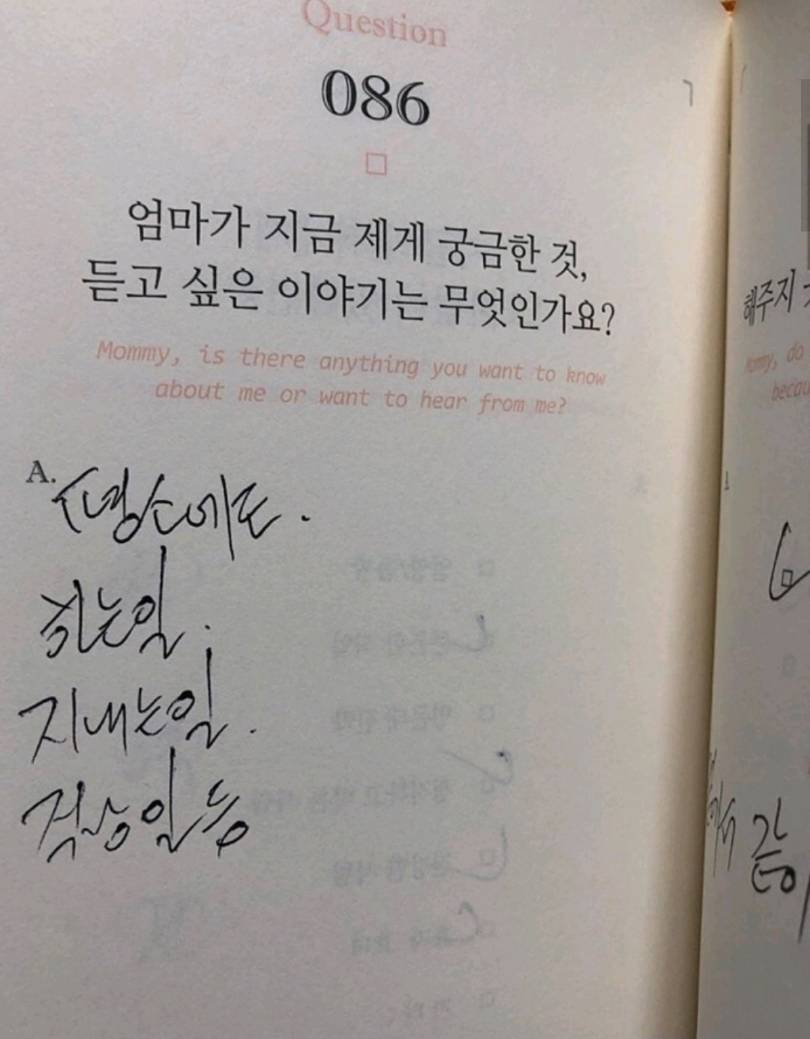 Question
086
엄마가 지금 제게 궁금한 것,
듣고 싶은 이야기는 무엇인가요?
Mommy, is there anything you want to know
about me or want to hear from me?
A.
평소에도.
하는일.
지내는일.
직장일 등
해주지
Mommy, do
becau